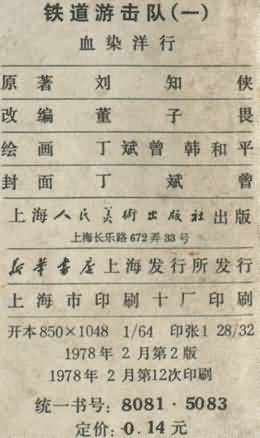 铁道游击队(一)
血染洋行
原著 刘知侠
改编 董子畏
绘画 丁斌曾 韩和平
封面 丁斌曾
上海人民美術出版社出版
上海长乐路672弄33号
新華書店上海发行所发行
上海市印刷十厂印刷
开本850×1048 1/64 印张1 28/32
1978年2月第2版
1978年2月第12次印刷
统一书号：8081·5083
定价：0.14元